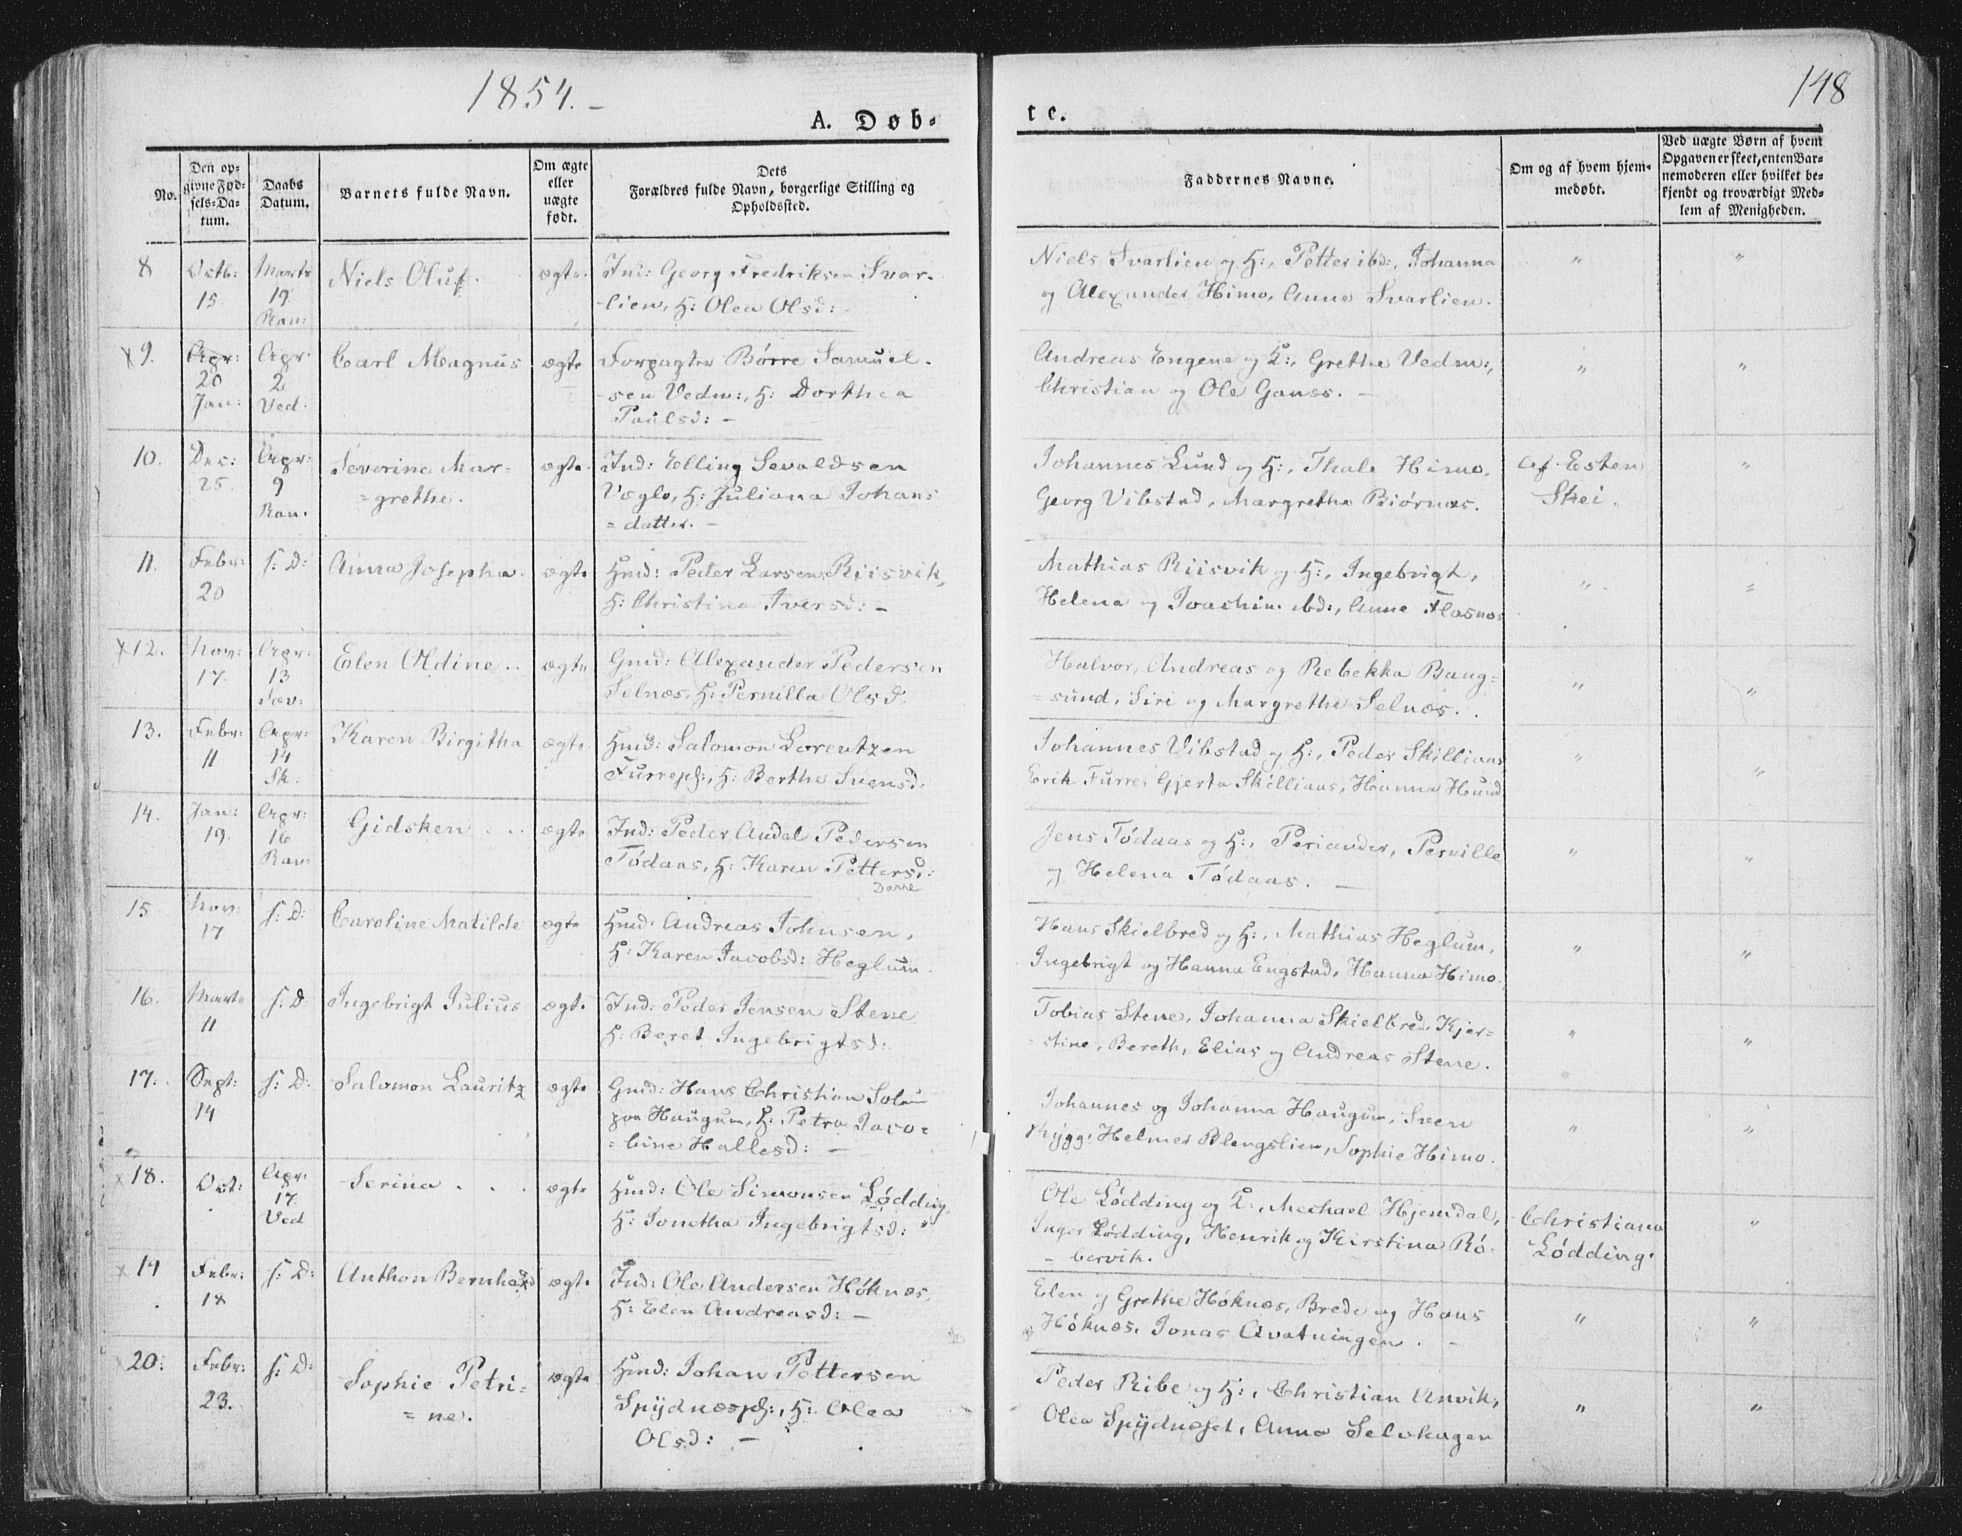 1854.-
148
A. Døb-
te.
No.
Den op-
givne Fød-
sels-Da-
tum.
Daabs
Datum.
Barnets fulde Navn.
Om ægte
eller
uægte
født.
Dets
Forældres fulde Navn, borgerlige Stilling og
Opholdssted.
Faddernes Navne.
Om og af hvem hjem-
medøbt.
Ved uægte Børn af hvem
Opgaven er skeet, enten Bar-
nemoderen eller hvilket be-
kjendt og troværdigt Med-
lem af Menigheden.
8
Octb:
15
Marts
19
Ran:
Niels Oluf.
ægte
Ind: Georg Fredriksen Svar-
lien, H: Olea Olsd:
Niels Svarlien og H:, Petter ibd:, Johanna
og Alexander Himo, Anne Svarlien.
"
"
x 9.
Apr:
20
Jan:
Apr:
2
Ved.
Carl Magnus
ægte
Forpagter Børre Samuel-
sen Vedm:, H: Dorthea
Paulsd: -
Andreas Engene og H:, Grethe Vedm:,
Christian og Ole Ganæs. -
"
"
10.
Dec:
25.
Apr:
9
Ran.
Severine Mar-
=grethe.
ægte
Ind: Elling Sevaldsen
Veglo, H: Juliana Johans
=datter. -
Johannes Lund og H:, Thale Himo,
Georg Vibstad, Margrethe Biørnæs.
Af Esten
Skei.
"
11.
Febr:
20
s: D:
Anna Josepha.
ægte
Hmd: Peder Larsen Riisvik,
H: Christina Iversd: -
Mathias Riisvik og H:, Ingebrigt,
Helena og Joachim ibd:, Anne Flasnæs
"
"
x 12.
Nov:
17.
Apr:
13
Sæv:
Elen Oldine . .
ægte
Gmd: Alexander Pedersen
Selnæs, H: Pernilla Olsd.
Halvor, Andreas og Rebekka Bang-
=sund, Siri og Margrethe Selnæs.
"
"
13.
Febr:
11
Apr:
14
Sk.
Karen Birgitha
ægte
Hmd: Salomon Lorentzen
Furrepl:, H: Berthe Svensd:
Johannes Vibstad og H:, Peder Skillians
Erik Furre, Gjerta Skillians, Hanna Hund
"
"
14.
Jan:
19.
Apr:
16
Ran:
Gidsken . . .
ægte
Ind: Peder Andal Pedersen
Tødaas, H: Karen Pettersd:
Jens Tødaas og H:, Periander, Pernille
og Helena Tødaas. -
"
"
15
Nov:
17
s: D:
Caroline Matilde
ægte
Hmd: Andreas Johnsen,
H: Karen Jacobsd: Heglum.
Hans Skielbred og H:, Mathias Heglum,
Ingebrigt og Hanna Engstad, Hanna Himo.
"
"
16.
Marts
11
s: D
Ingebrigt Julius
ægte
Ind: Peder Jensen Stene
H: Beret Ingebrigtsd:
Tobias Stene, Johanna Skielbred, Kjer-
stine, Bereth, Elias og Andreas Stene.
"
"
17.
Sept:
14
s: D:
Salomon Lauritz
ægte
Gmd: Hans Christian Solum
paa Haugum, H: Petra Jaco-
=bine Hallesd: -
Johannes og Johanna Haugum, Sven
Rygg, Helmer Blengslien, Sophie Himo.
"
"
x 18.
Oct:
Apr:
17
Ved
Serina . . .
ægte
Hmd: Ole Simonsen Lødding,
H: Jonetha Ingebrigtsd:
Ole Lødding og H:, Mechael Hjemdal,
Inger Lødding, Henrik og Kirstina Rö-
- bervik.
Christiana
Lødding.
"
x 19
Febr:
18
s: D:
Anthon Bernhard
ægte
Ind: Ole Andersen Høknæs,
H: Elen Andreasd: -
Elen og Grethe Høknæs, Brede og Hans
Høknæs, Jonas Avatningen. -
"
"
x 20:
Febr:
23.
s: D:
Sophie Petri-
=ne.
ægte
Hmd: Johan Pettersen
Spydnæspl:, H: Olea
Olsd: -
Peder Ribe og H:, Christian Anvik,
Olea Spydnæset, Anna Selvhagen
"
"